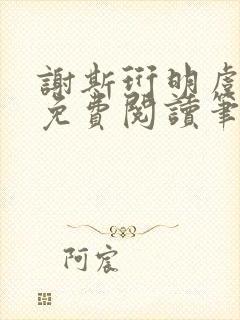 謝斯珩明虞
免費閱讀筆
阿宸